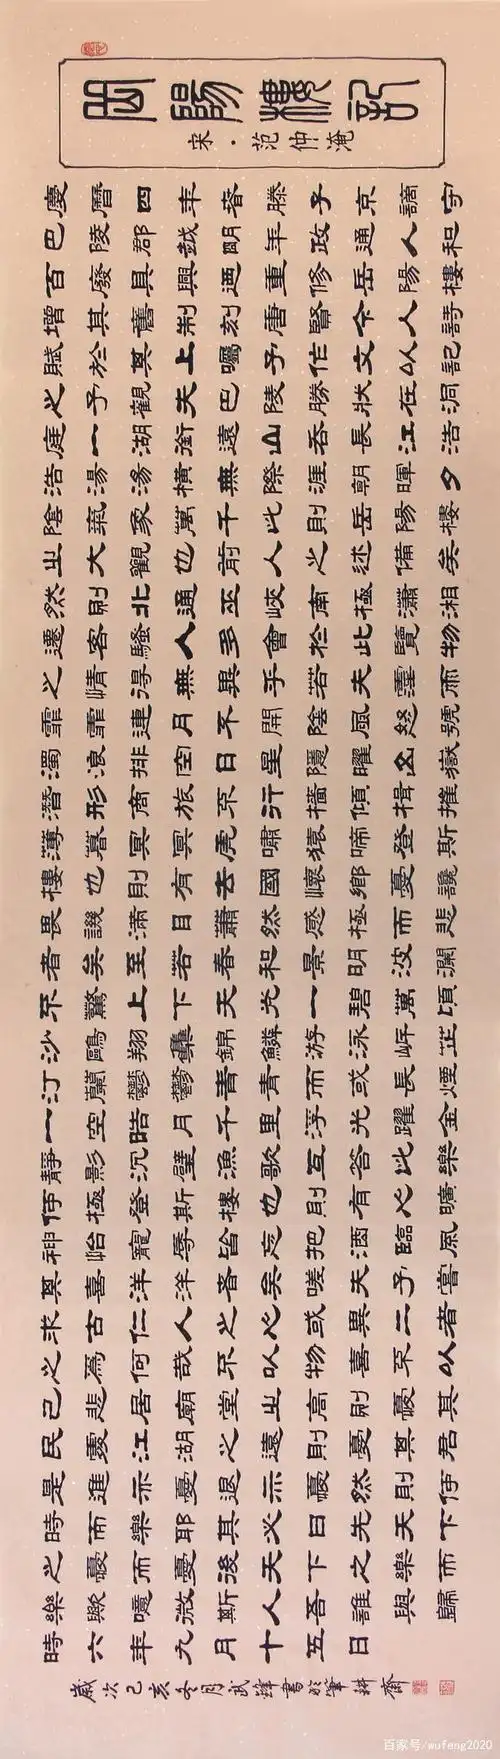 岳陽樓記
宋·范仲淹
慶曆四年春滕子京謫守
巴陵郡越明年政通人和
百廢具興乃重修岳陽樓
增其舊制刻唐賢今人詩
賦於其上囑予作文以記
之予觀夫巴陵勝狀在洞
庭一湖銜遠山吞長江浩
浩湯湯橫無際涯朝暉夕
陰氣象萬千此則岳陽樓
之大觀也前人之述備矣
然則北通巫峽南極瀟湘
遷客騷人多會於此覽物
之情得無異乎若夫霪雨
霏霏連月不開陰風怒號
濁浪排空日星隱曜山嶽
潛形商旅不行檣傾楫摧
薄暮冥冥虎嘯猿啼登斯
樓也則有去國懷鄉憂讒
畏譏滿目蕭然感極而悲
者矣至若春和景明波瀾
不驚上下天光一碧萬頃
沙鷗翔集錦鱗游泳岸芷
汀蘭鬱鬱青青而或長煙
一空皓月千里浮光躍金
靜影沉璧漁歌互答此樂
何極登斯樓也則有心曠
神怡寵辱皆忘把酒臨風
其喜洋洋者矣嗟夫予嘗
求古仁人之心或異二者
之為何哉不以物喜不以
己悲居廟堂之高則憂其
民處江湖之遠則憂其君
是進亦憂退亦憂然則何
時而樂耶其必曰先天下
之憂而憂後天下之樂而
樂歟噫微斯人吾誰與歸
時六年九月十五日
歲次己亥冬月武鋒書於筆耕齋
百家号/wufeng2020